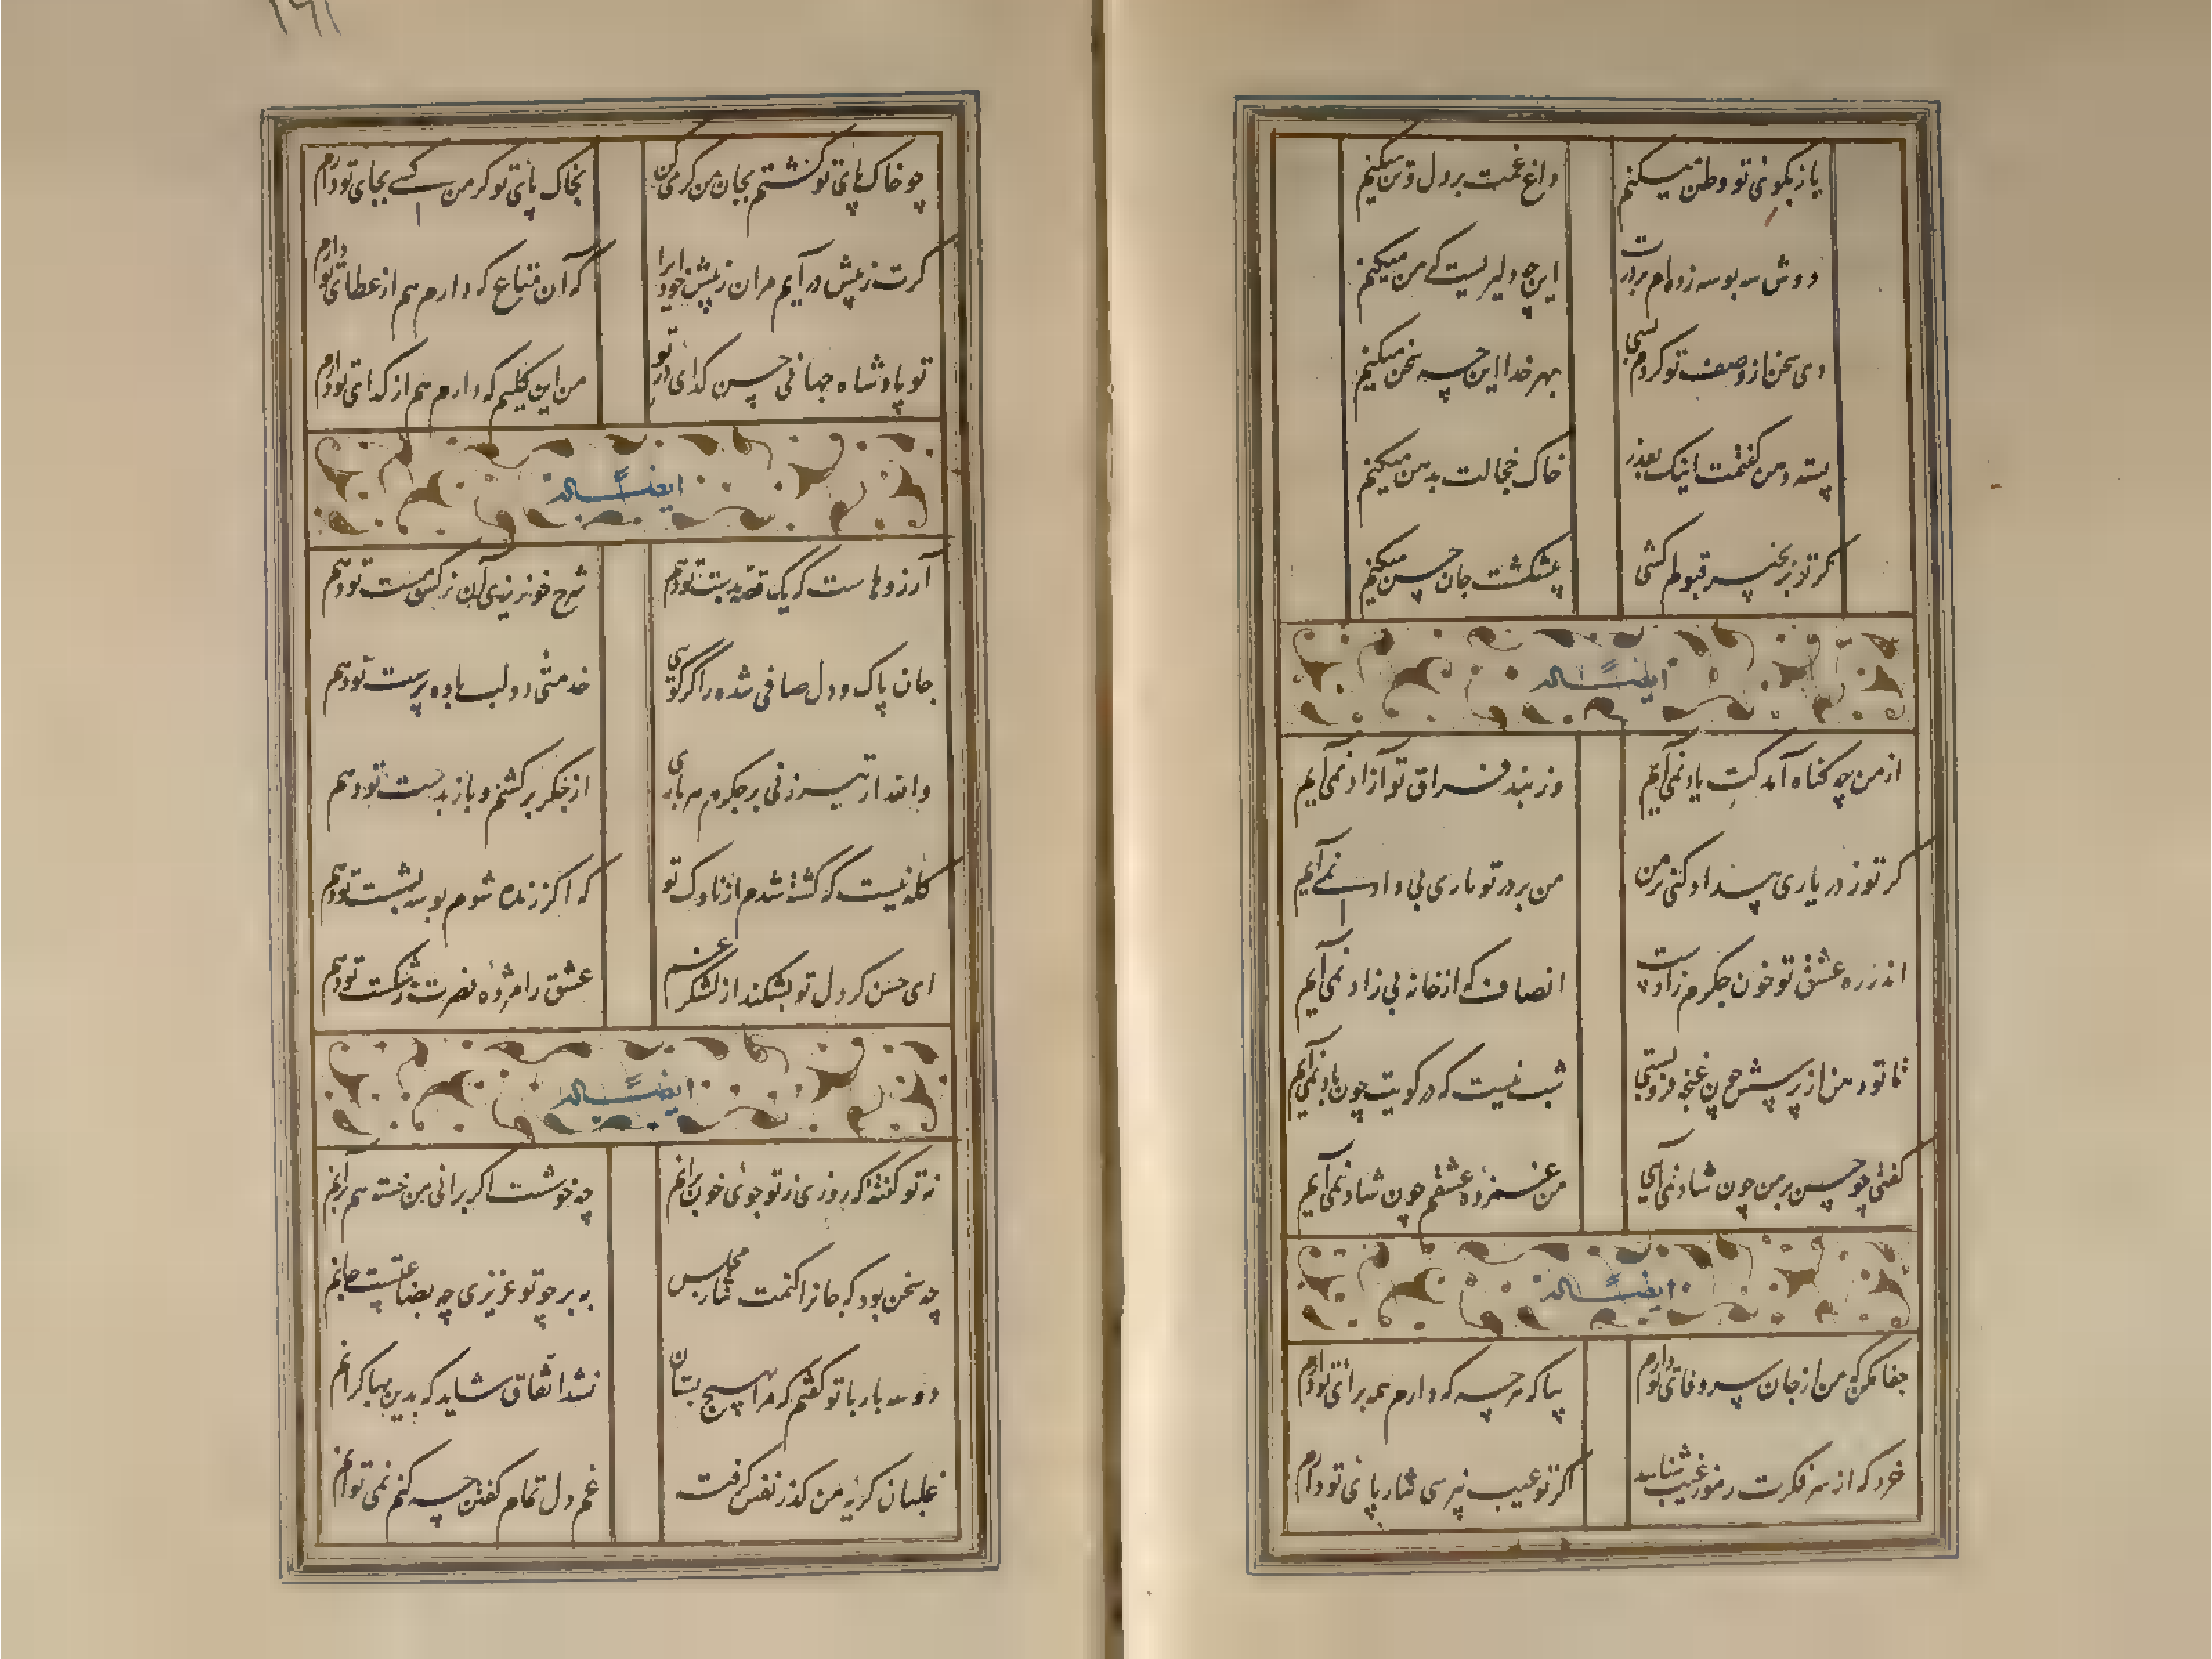 باز بکوی تو وطن میکنم
داغ غمت بر دل و تن میکنم
دوش سه بوسه زده‌ام بر درت
این چه دلیریست که من میکنم
دی سخن از وصف تو کردم بسی
بهر خدا این چه سخن میکنم
پسته دهن گفتمت اینک بعذر
خاک خجالت بدهن میکنم
کر تو بزنجیر قبولم کشی
پیشکشت جان حسن میکنم
ایضاً له
از من چه کناه آمد کت یاد نمی‌آیم
وز بند فراق تو آزاد نمی‌آیم
کر تو ز در یاری بیداد کنی بر من
من بر در تو باری بی داد نمی‌آیم
اندر ره عشق تو خون جکرم زادست
انصاف که از خانه بی زاد نمی‌آیم
تا تو دهن از پرسش چون غنچه فرو بستی
شب نیست که در کویت چون باد نمی‌آیم
کفتی چو حسن بر من چون شاد نمی‌آیی
من غمزده عشقم چون شاد نمی‌آیم
ایضاً له
جفا مکن که من از جان سر وفای تو دارم
بیا که هر چه که دارم همه برای تو دارم
خرد که از سر فکرت رموز غیب شناسد
اکر تو عیب نپرسی نثار پای تو دارم
چو خاک پای تو کشتم بجان من کرمی کن
بخاک پای تو کر من کسی بجای تو دارم
کرت ز پیش در آیم مران ز پیش خود ایرا
که آن متاع که دارم هم از عطای تو دارم
تو پادشاه جهانی حسن کدای در تو
من این کلیم که دارم هم از کدای تو دارم
ایضاً له
آرزوهاست که یک قصه بدست تو دهم
شرح خونریزی آن نرکس مست تو دهم
جان پاک و دل صافی شده را کر کویی
خدمتی دو لب باده پرست تو دهم
والله ار تیر زنی بر جکرم هر باری
از جکر برکشم و باز بدست تو دهم
کله نیست که کشته شدم از ناوک تو
که اکر زنده شوم بوسه بشست تو دهم
ای حسن کر دل تو بشکند از لشکر غم
عشق را مژده نصرت ز شکست تو دهم
ایضاً له
نه تو کفتهٔ که روزی ز تو جوی خون برانم
چه خوشست اکر برانی من خسته هم برانم
چه سخن بود که جانرا کنمت نثار مجلس
به بر چو تو عزیزی چه بضاعتیست جانم
دو سه بار با تو کفتم که مرا بهیچ بستان
نشد اتفاق شاید که بدین بها کرانم
غلیان کریه من کذر نفس کرفت
غم دل تمام کفتن چه کنم نمی توانم